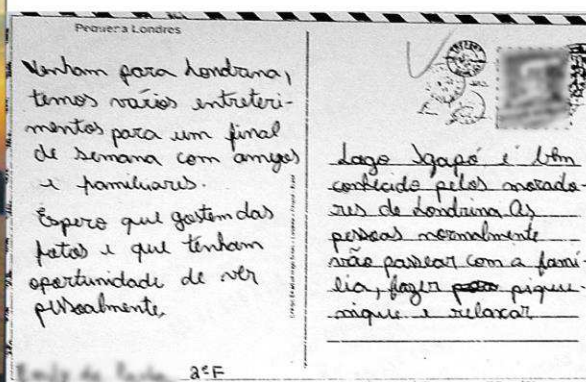 Pequena Londres
Venham para Londrina,
temos vários entreteri-
mentos para um final
de semana com amigos
e familuares.
Espero que gostem das
fotos e que tenham
oportunidade de ver
pessoalmente.
2ºF
Lago Igapó é bem
conhecido pelos morado
res de Londrina As
pessoas normalmente
vão passear com a famí-
lia, fazer pique-
nique e relaxar